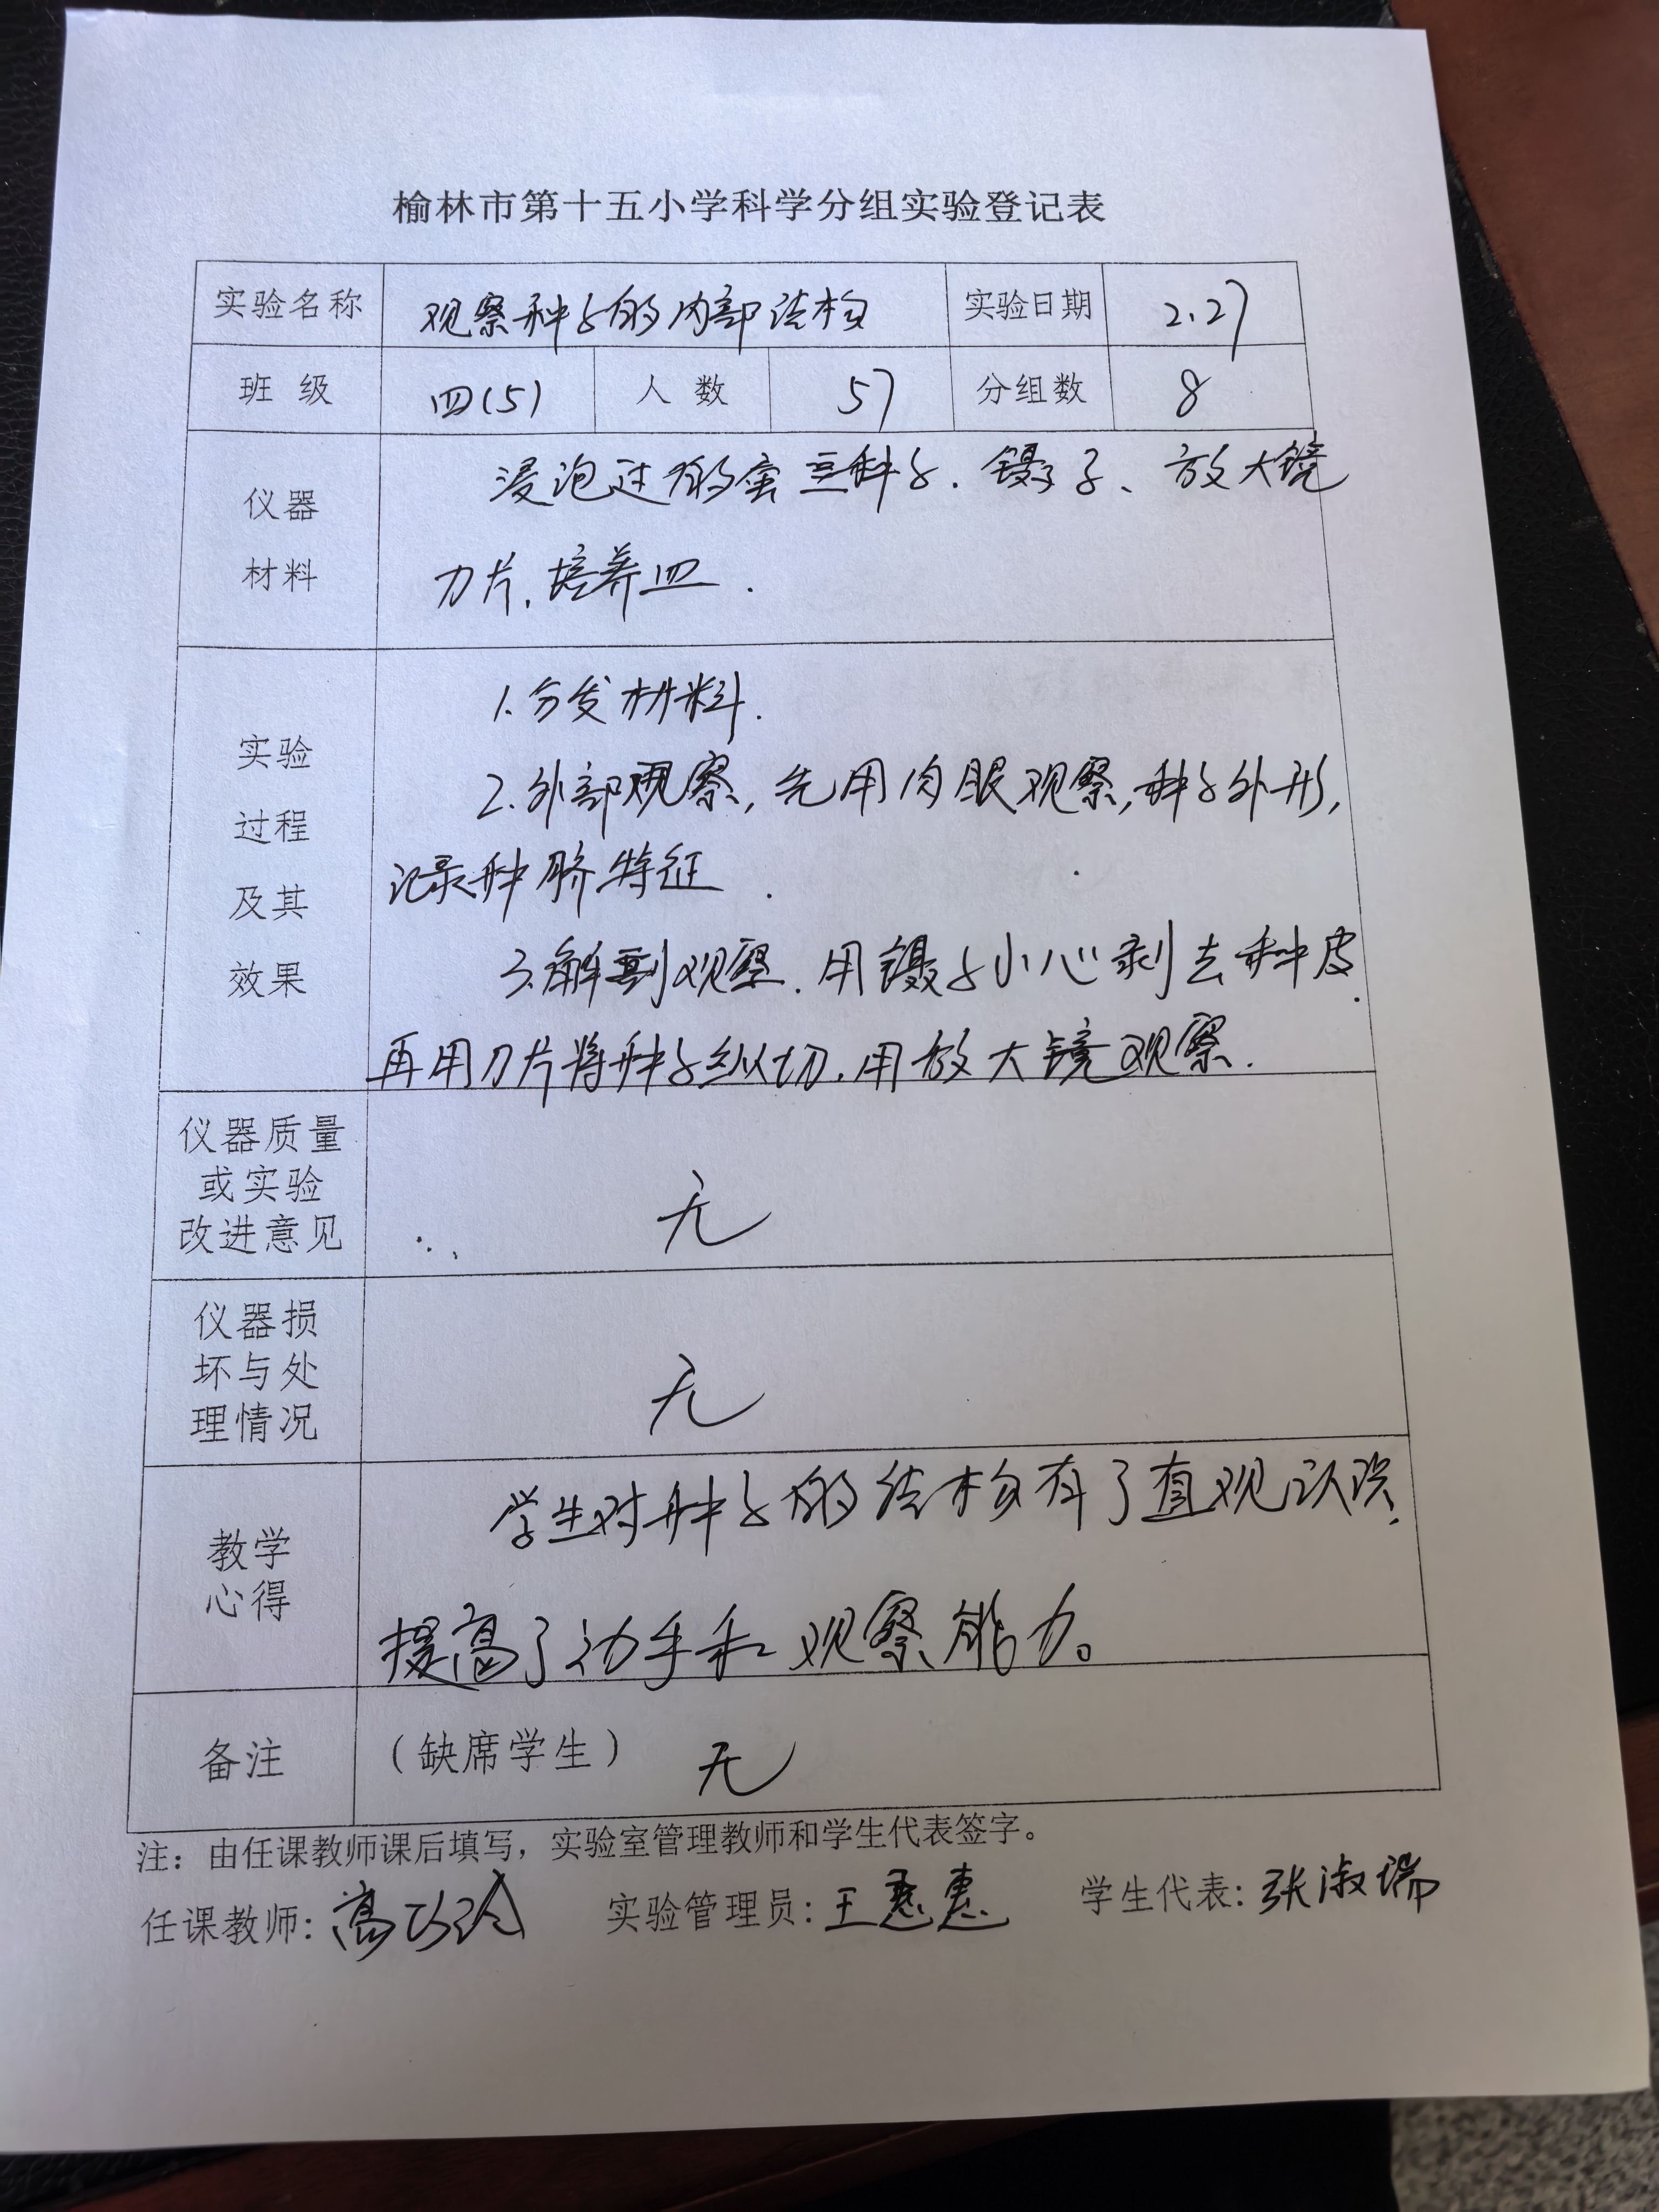 榆林市第十五小学科学分组实验登记表
实验名称 观察种子的内部结构 实验日期 2.27
班 级 四(5) 人 数 57 分组数 8
仪器
材料
浸泡过的蚕豆种子.镊子、放大镜
刀片.培养皿.
实验
过程
及其
效果
1.分发材料.
2.外部观察,先用肉眼观察,种子外形,
记录种脐特征.
3.解剖观察.用镊子小心剥去种皮.
再用刀片将种子纵切.用放大镜观察.
仪器质量
或实验
改进意见
无
仪器损
坏与处
理情况
无
教学
心得
学生对种子的结构有了直观认识,
提高了动手和观察能力。
备注 (缺席学生) 无
注：由任课教师课后填写，实验室管理教师和学生代表签字。
任课教师: 高巧玲 实验管理员: 王惠惠 学生代表: 张淑瑞